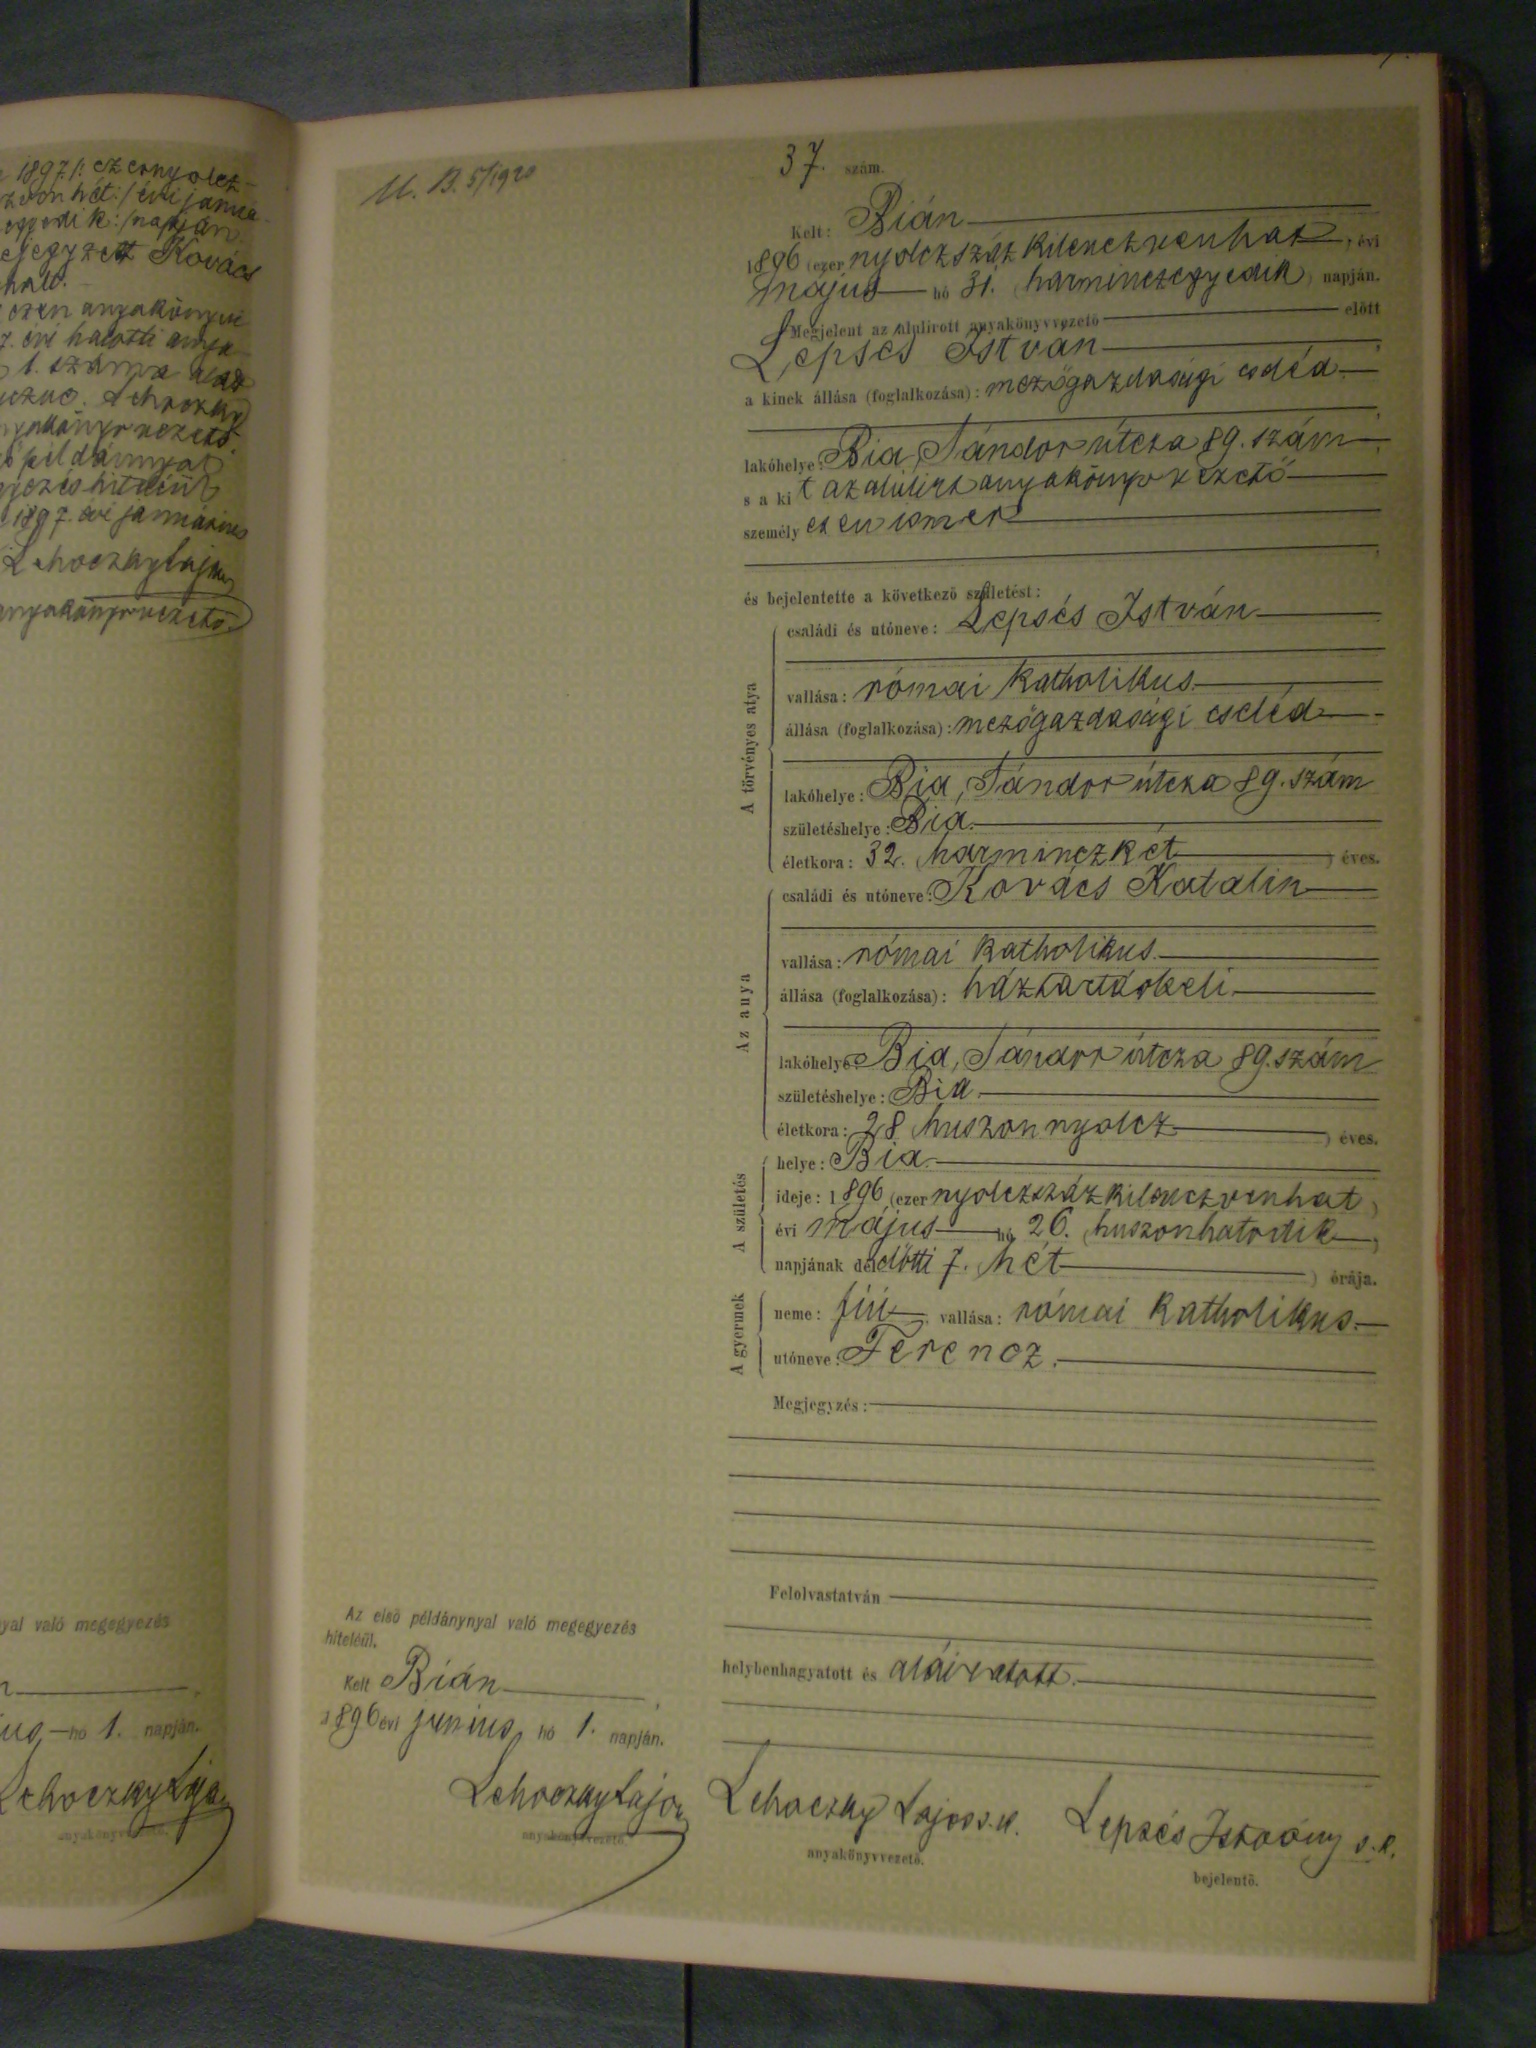 1897/: ezernyolcz-
évi janu
egyedik:/ napján
ejegyzett Kovács
ezen anyakönyvi
évi halotti anya
1. száma alatt
Lehoczky
anyakönyvvezető
1897. évi január
Lehoczky Lajos
anyakönyvvezető
nyal való megegyezés
hó 1. napján.
Lehoczky Lajos
anyakönyvvezető.
M. B. 5/1920
37. szám.
Kelt: Bián
1896 (ezer nyolczszáz kilenczvenhat), évi
május hó 31. (harminczegyedik) napján.
Megjelent az alulirott anyakönyvvezető előtt
Lepsés István
a kinek állása (foglalkozása): mezőgazdasági cseléd
lakóhelye: Bia, Sándor útcza 89. szám
s a kit az alulirt anyakönyvvezető
személyesen ismer
és bejelentette a következő születést:
A törvényes atya
családi és utóneve: Lepsés István
vallása: római katholikus
állása (foglalkozása): mezőgazdasági cseléd
lakóhelye: Bia, Sándor útcza 89. szám
születéshelye: Bia.
életkora: 32. (harminczkét) éves.
Az anya
családi és utóneve: Kovács Katalin
vallása: római katholikus.
állása (foglalkozása): háztartásbeli
lakóhelye: Bia, Sándor útcza 89. szám
születéshelye: Bia.
életkora: 28 (huszonnyolcz) éves.
A születés
helye: Bia.
ideje: 1896 (ezer nyolczszáz kilenczvenhat)
évi május hó 26. (huszonhatodik)
napjának délelőtti 7. (hét) órája.
A gyermek
neme: fiú, vallása: római katholikus.
utóneve: Ferencz.
Megjegyzés:
Felolvastatván
helybenhagyatott és aláiratott.
Lehoczky Lajos s.k.
anyakönyvvezető.
Lepsés István s.k.
bejelentő.
Az első példánynyal való megegyezés
hiteléül.
Kelt Bián,
1896 évi junius hó 1. napján.
Lehoczky Lajos
anyakönyvvezető.